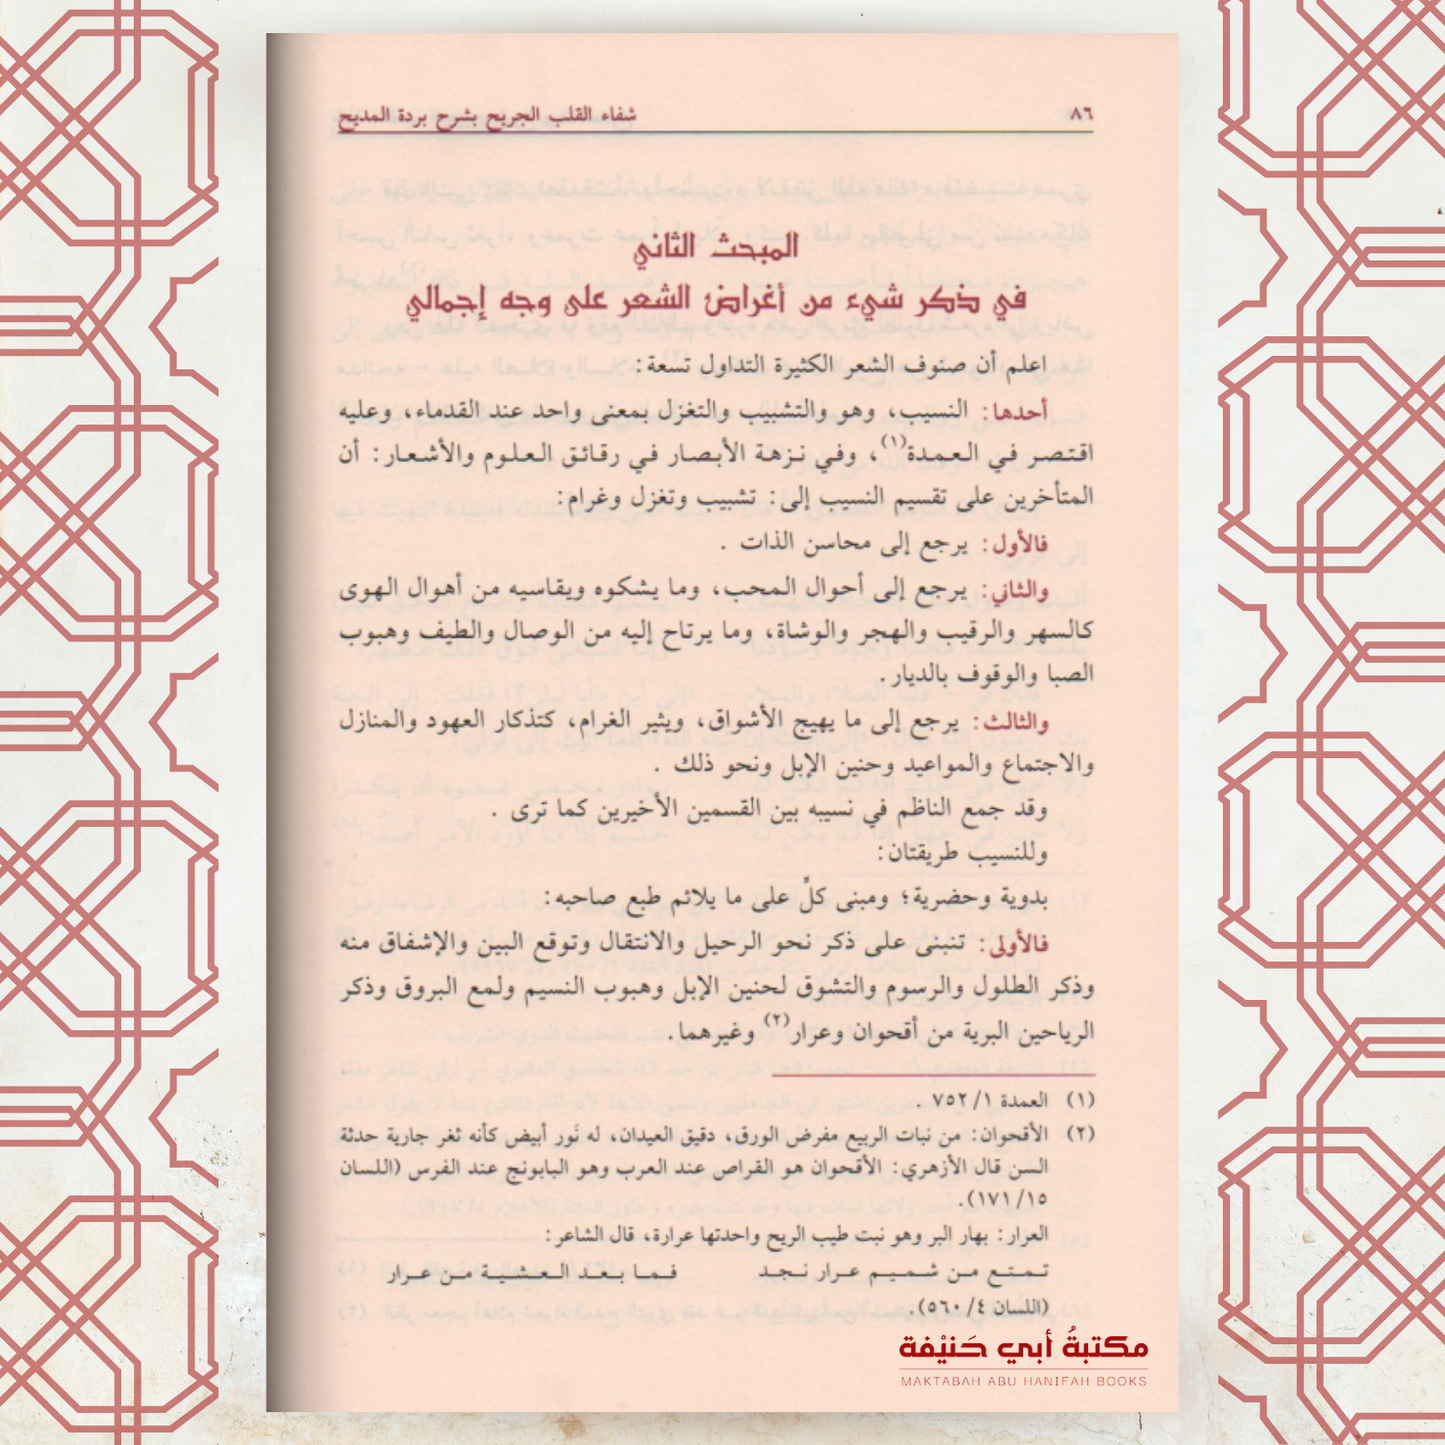 ٨٦ شفاء القلب الجريح بشرح بردة المديح
المبحث الثاني
في ذكر شيء من أغراض الشعر على وجه إجمالي
اعلم أن صنوف الشعر الكثيرة التداول تسعة:
أحدها: النسيب، وهو والتشبيب والتغزل بمعنى واحد عند القدماء، وعليه
اقتصر في العمدة(١)، وفي نزهة الأبصار في رقائق العلوم والأشعار: أن
المتأخرين على تقسيم النسيب إلى: تشبيب وتغزل وغرام:
فالأول: يرجع إلى محاسن الذات .
والثاني: يرجع إلى أحوال المحب، وما يشكوه ويقاسيه من أهوال الهوى
كالسهر والرقيب والهجر والوشاة، وما يرتاح إليه من الوصال والطيف وهبوب
الصبا والوقوف بالديار.
والثالث: يرجع إلى ما يهيج الأشواق، ويثير الغرام، كتذكار العهود والمنازل
والاجتماع والمواعيد وحنين الإبل ونحو ذلك .
وقد جمع الناظم في نسيبه بين القسمين الأخيرين كما ترى .
وللنسيب طريقتان:
بدوية وحضرية؛ ومبنى كلٍّ على ما يلائم طبع صاحبه:
فالأولى: تنبنى على ذكر نحو الرحيل والانتقال وتوقع البين والإشفاق منه
وذكر الطلول والرسوم والتشوق لحنين الإبل وهبوب النسيم ولمع البروق وذكر
الرياحين البرية من أقحوان وعرار(٢) وغيرهما.
(١) العمدة ١/ ٧٥٢ .
(٢) الأقحوان: من نبات الربيع مفرض الورق، دقيق العيدان، له نَور أبيض كأنه ثغر جارية حدثة
السن قال الأزهري: الأقحوان هو القراص عند العرب وهو البابونج عند الفرس (اللسان
١٥/ ١٧١).
العرار: بهار البر وهو نبت طيب الريح واحدتها عرارة، قال الشاعر:
تمتع من شميم عرار نجد فما بعد العشية من عرار
(اللسان ٤/ ٥٦٠).
مكتبةُ أبي حَنيْفة
MAKTABAH ABU HANIFAH BOOKS